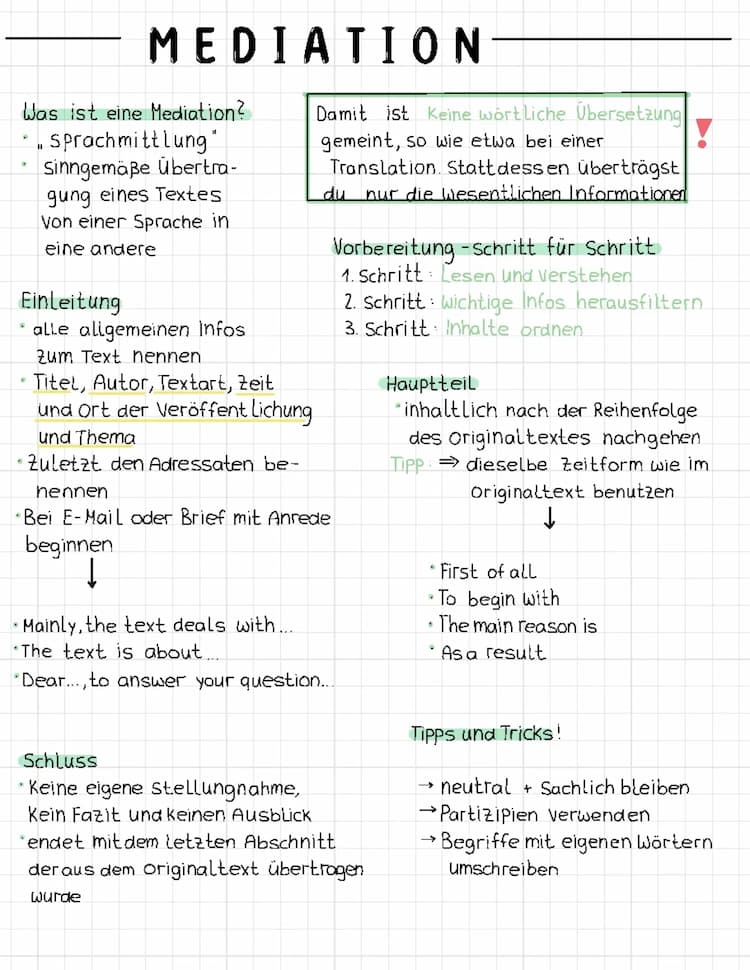 MEDIATION
Was ist eine Mediation?
• „Sprachmittlung"
• Sinngemäße Übertra-
gung eines Textes
von einer Sprache in
eine andere
Damit ist Keine wörtliche Übersetzung
gemeint, so wie etwa bei einer
Translation. Stattdessen überträgst
du nur die wesentlichen Informationen
!
Vorbereitung - Schritt für Schritt
1. Schritt: Lesen und verstehen
2. Schritt: wichtige Infos herausfiltern
3. Schritt: Inhalte ordnen
Einleitung
• alle allgemeinen Infos
zum Text nennen
• Titel, Autor, Textart, Zeit
und Ort der Veröffentlichung
und Thema
• Zuletzt den Adressaten be-
nennen
• Bei E-Mail oder Brief mit Anrede
beginnen
↓
• Mainly, the text deals with...
• The text is about...
• Dear..., to answer your question...
Hauptteil
• inhaltlich nach der Reihenfolge
des Originaltextes nachgehen
Tipp: ⇒ dieselbe Zeitform wie im
Originaltext benutzen
↓
• First of all
• To begin with
• The main reason is
• As a result
Schluss
• Keine eigene Stellungnahme,
Kein Fazit und keinen Ausblick
• endet mit dem letzten Abschnitt
der aus dem Originaltext übertragen
wurde
Tipps und Tricks!
→ neutral + Sachlich bleiben
→ Partizipien verwenden
→ Begriffe mit eigenen Wörtern
umschreiben